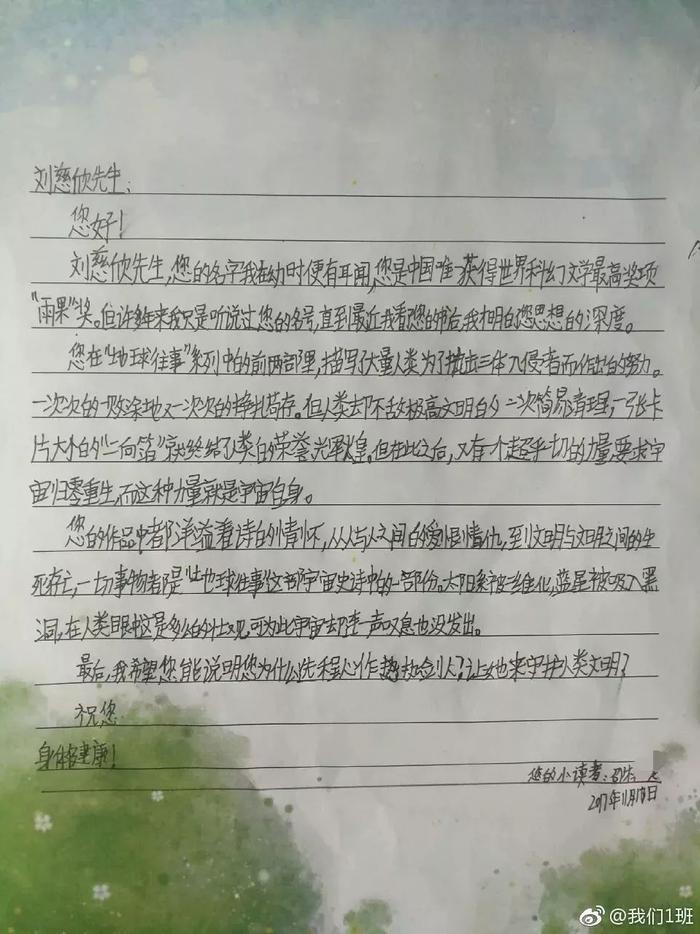 刘慈欣先生:
您好!
刘慈欣先生,您的名字我在幼时便有耳闻,您是中国唯一获得世界科幻文学最高奖项
"雨果"奖。但许多年来我只是听说过您的名号,直到最近我看您的书后,我才明白您思想的深度。
您在"地球往事"系列中的前两部里,描写了大量人类为了抗击三体入侵者而作出的努力。
一次次的一败涂地又一次次的挣扎苟存。但人类却不敌极高文明的一次简易清理,一张卡
片大小的"二向箔"就终结了人类的荣誉光辉。但在此之后,又有一个超乎一切的力量,要求宇
宙归零重生,而这种力量就是宇宙自身。
您的作品中都洋溢着诗的情怀,从人与人之间的爱恨情仇,到文明与文明之间的生
死存亡,一切事物都是"地球往事"这部宇宙史诗中的一部份。太阳系被二维化,蓝星被吸入黑
洞,在人类眼中这是多么的壮观,可为此宇宙却连一声叹息也没发出。
最后,我希望您能说明您为什么选程心作为执剑人?让她来守护人类文明?
祝您
身体健康!
您的小读者:
2017年11月18日
@我们1班